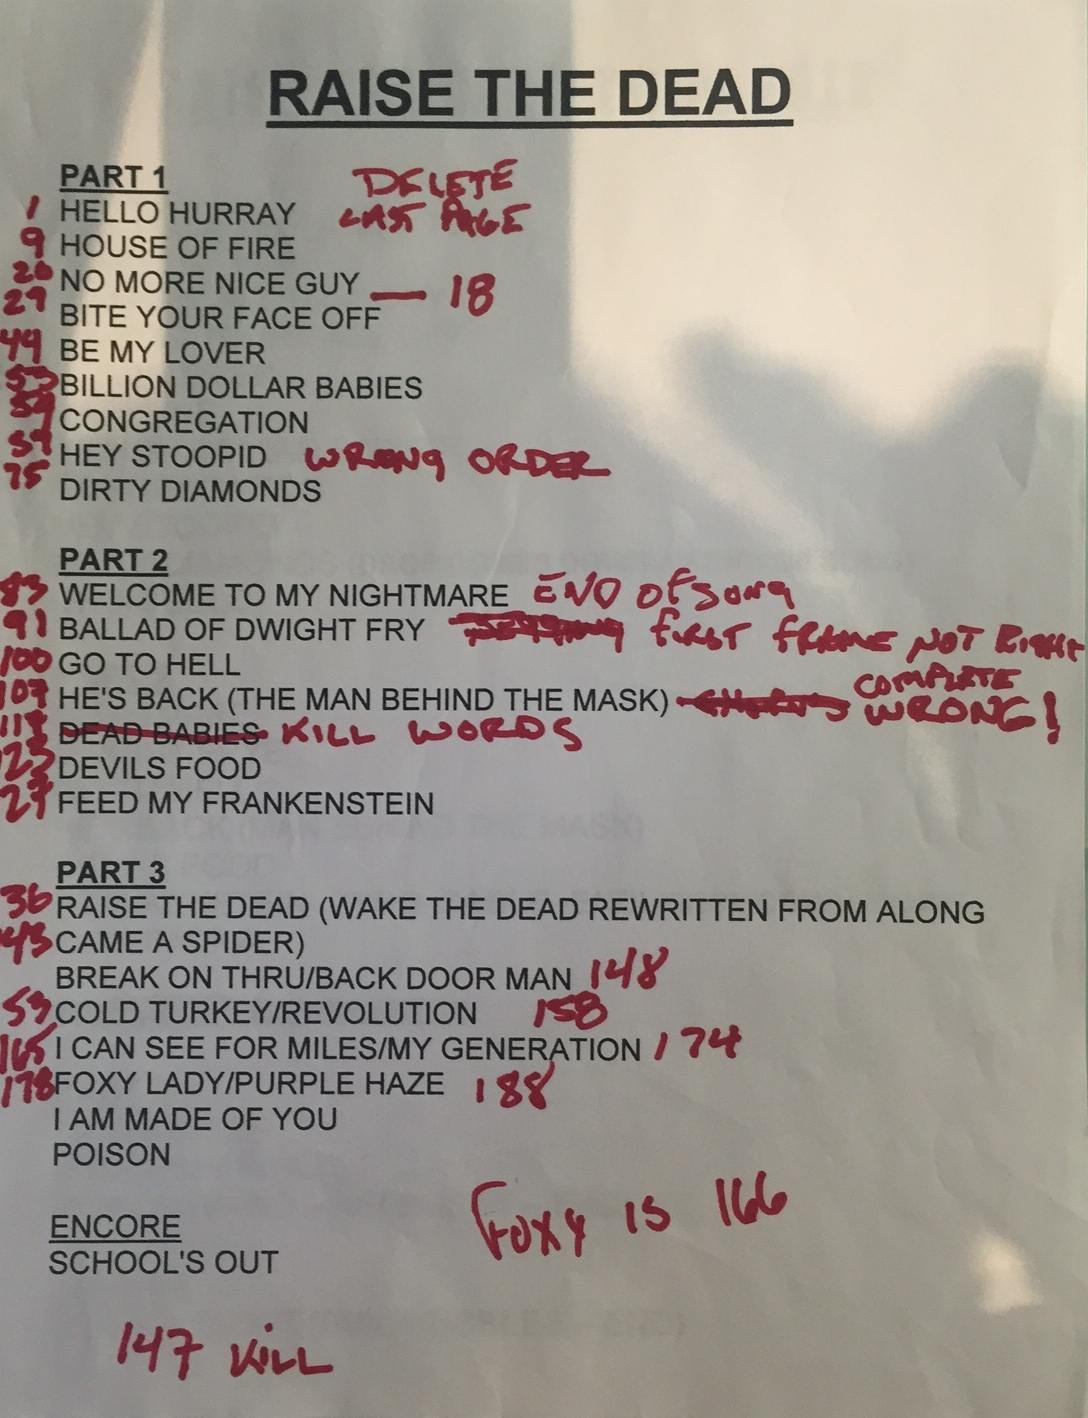 RAISE THE DEAD
PART 1 DELETE
1 HELLO HURRAY LAST PAGE
9 HOUSE OF FIRE
26 NO MORE NICE GUY — 18
29 BITE YOUR FACE OFF
49 BE MY LOVER
53 BILLION DOLLAR BABIES
CONGREGATION
59 HEY STOOPID WRONG ORDER
75 DIRTY DIAMONDS
PART 2
83 WELCOME TO MY NIGHTMARE END OF SONG
91 BALLAD OF DWIGHT FRY FIRST FRAME NOT RIGHT
100 GO TO HELL
107 HE'S BACK (THE MAN BEHIND THE MASK) COMPLETE WRONG!
118 DEAD BABIES KILL WORDS
23 DEVILS FOOD
27 FEED MY FRANKENSTEIN
PART 3
36 RAISE THE DEAD (WAKE THE DEAD REWRITTEN FROM ALONG
43 CAME A SPIDER)
BREAK ON THRU/BACK DOOR MAN 148
53 COLD TURKEY/REVOLUTION 158
165 I CAN SEE FOR MILES/MY GENERATION 174
178 FOXY LADY/PURPLE HAZE 188
I AM MADE OF YOU
POISON
FOXY IS 166
ENCORE
SCHOOL'S OUT
147 KILL